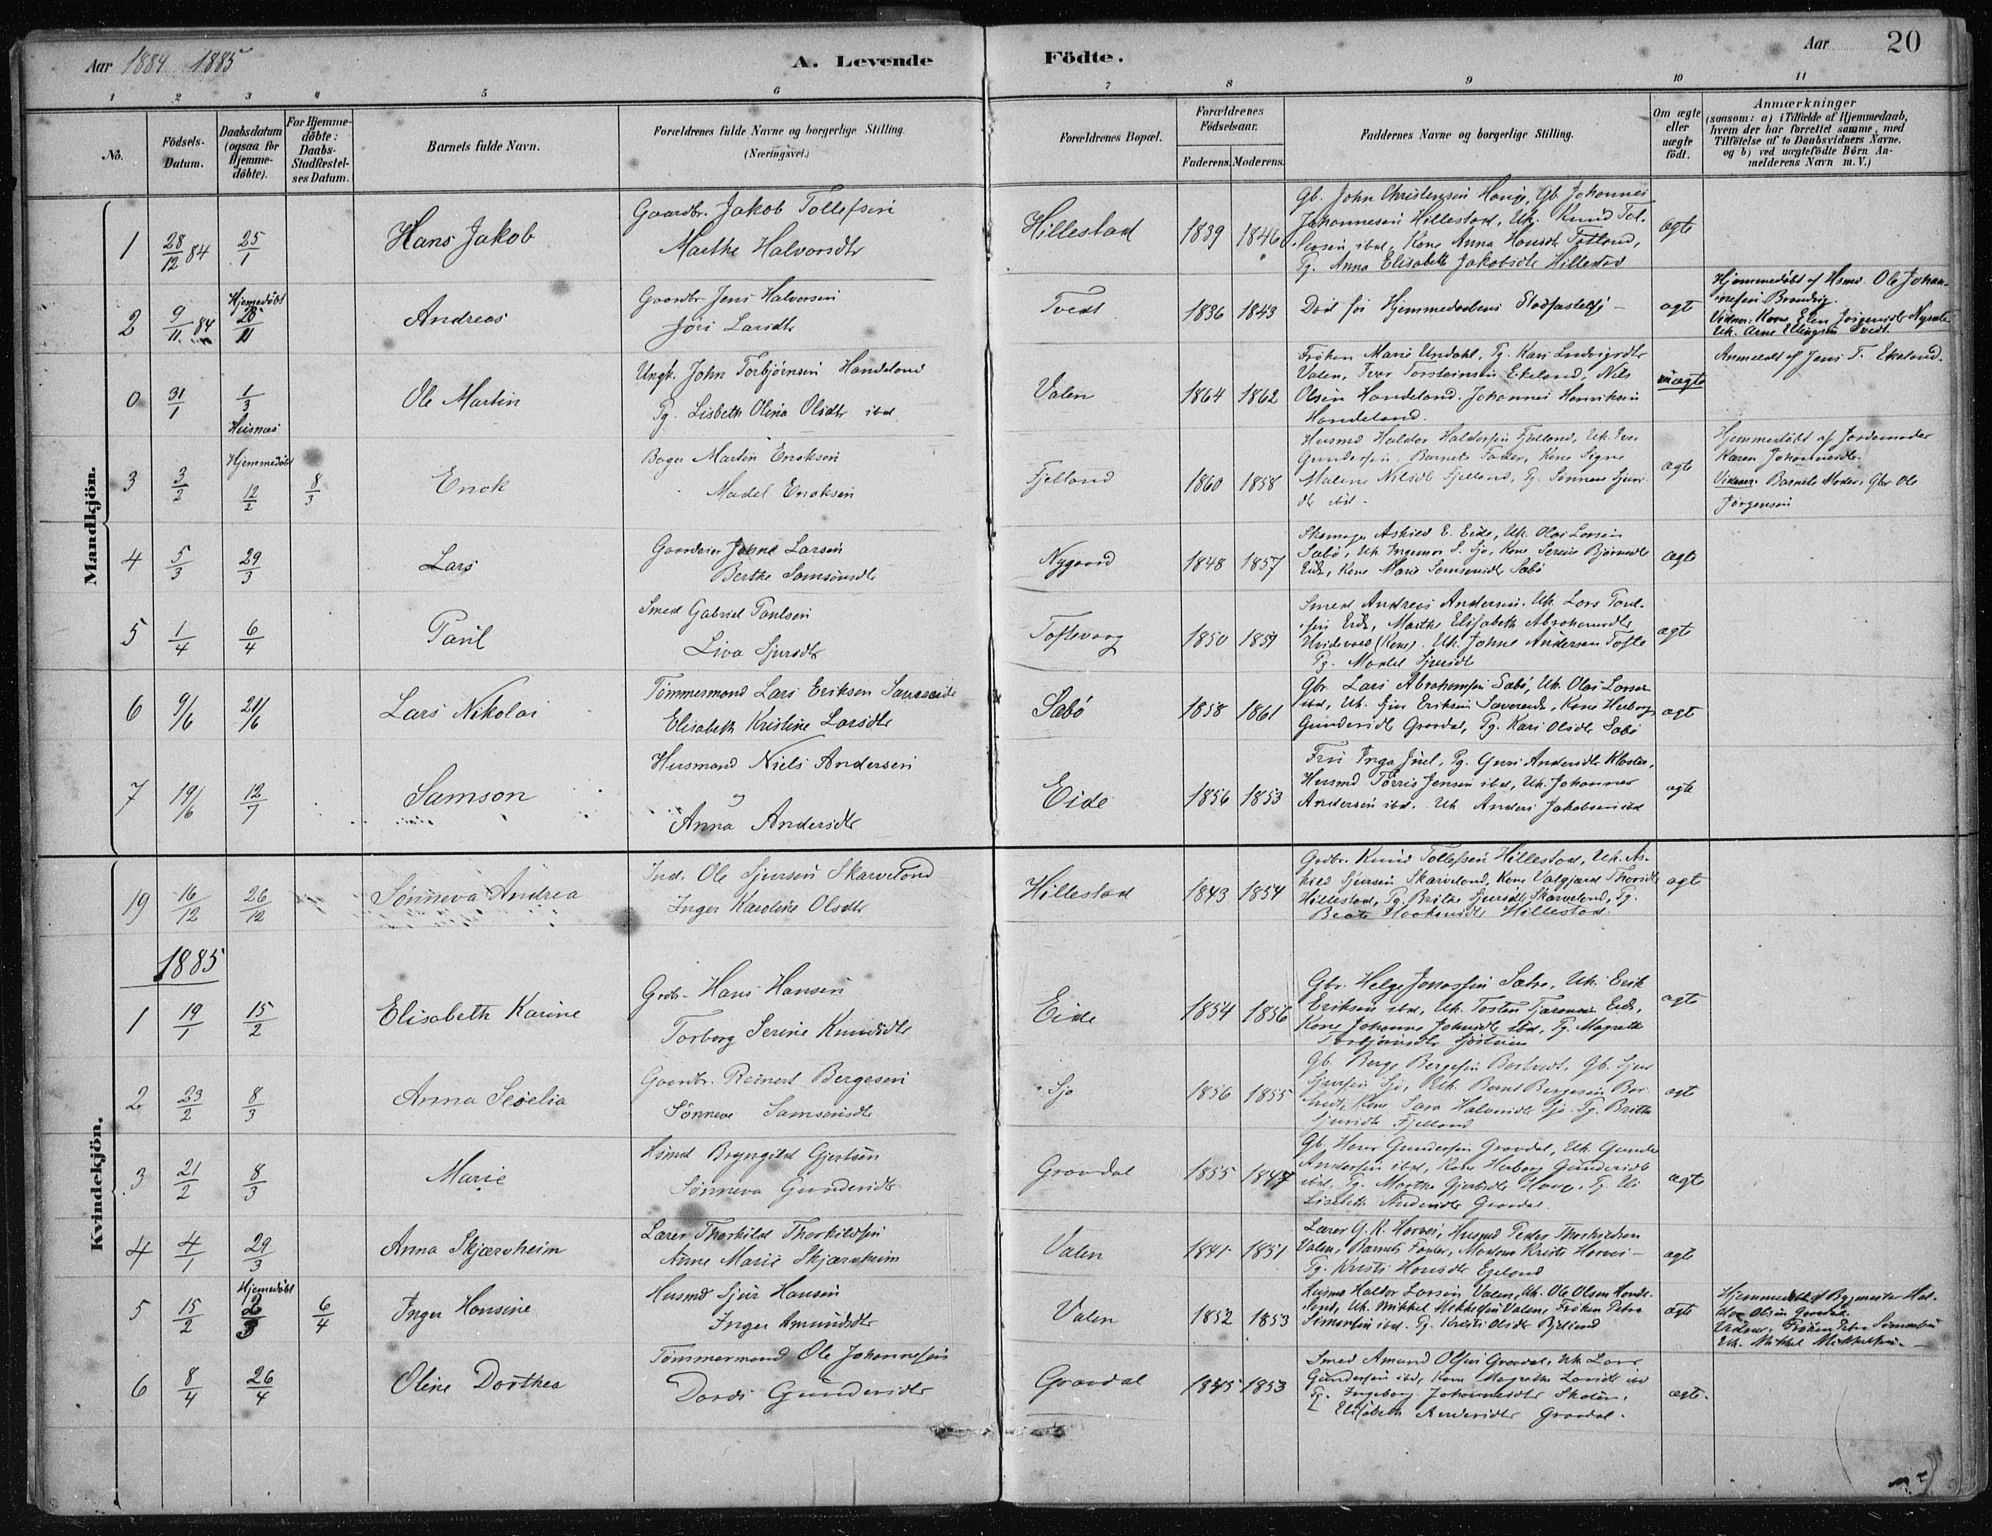 Aar 1884 1885
A. Levende Födte.
Aar 20
1 2 3 4 5 6 7 8 9 10 11
No.
Födsels-Datum.
Daabsdatum (ogsaa for Hjemmedöbte).
For Hjemmedöbte: Daabs-Stadfæstelses Datum.
Barnets fulde Navn.
Forældrenes fulde Navne og borgerlige Stilling. (Næringsvei.)
Forældrenes Bopæl.
Forældrenes Födselsaar.
Faderens. Moderens.
Faddernes Navne og borgerlige Stilling.
Om ægte eller uægte födt.
Anmærkninger (saasom: a) i Tilfælde af Hjemmedaab, hvem der har forrettet samme, med Tilföielse af to Daabsvidners Navne, og b) ved uægtefödte Börn Anmelderens Navn m. V.)
Mandkjön.
1 28/12 84 25/1 Hans Jakob
Gaardbr. Jakob Tollefsen
Marthe Halvorsdtr
Hillestad 1839 1846
Gb. John Christensen Hauge, Gb. Johannes
Johannesen Hillestad, Uk. Knud Tol-
lefsen ibd, Kone Anna Hansdtr Totland,
Pg. Anna Elisabeth Jakobsdtr Hillestad
ægte
2 9/11 84 Hjemedöbt Andreas
Gaardbr Jens Halvorsen
Jori Larsdtr
Tvedt 1836 1843
Död før Hjemmedaabens Stadfæstelse —
ægte
Hjemmedöbt af Hsmd. Ole Johan-
nesen
Vidner: Kone Elen Jörgensdtr
0 31/1 1/3 Huisnæs
Ole Martin
Ungk. John Torbjörnsen Handeland
Pg. Lisbeth Olina Olsdtr ibd
Valen 1864 1862
Fröken Marie Undahl, Pg. Kari Ludvigsdtr
Valen, Iver Torsteinsen Ekeland, Nils
Olsen Handeland, Johannes Henriksen
Handeland.
uægte
Anmeldt af Jens T. Ekeland.
3 3/2 Hjemmedöbt 12/2 8/3 Enok
Bager Martin Enoksen
Madel Enoksen
Fjelland 1860 1858
Husmd Haldor Haldorsen Fjelland, Uk. Iver
Gundersen, Barnets Fader, Kone Signe
Malene Nilsdtr Fjelland, Pg. Sönneve Sjurs-
dtr ibd.
ægte
Hjemmedöbt af Jordemoder
Karen Johannesdtr.
Vidner: Barnets Moder, Gbr Ole
Jörgensen
4 5/3 29/3 Lars
Gaardeier Johne Larsen
Berthe Samsonsdtr
Nygaard 1848 1857
Askild E. Eide, Uk. Olai Larsen
Sæbö, Uk. Ingemar S. Sjo, Kone Serine Björnsdtr
Eide, Kone Marie Samsonsdtr Sæbö
ægte
5 1/4 6/4 Paul
Smed Gabriel Paulsen
Liva Sjursdtr
Toftevaag 1850 1859
Smed Andreas Andersen. Uk. Lars Paul-
sen Eide, Marthe Elisabeth Abrahamsdtr
(Kone). Uk. Johne Andersen Tofte
Pg. Madel Sjursdtr
ægte
6 9/6 21/6 Lars Nikolai
Tömmermand Lars Eriksen
Elisabeth Kristine Larsdtr
Sæbö 1858 1861
Gbr. Lars Abrahamsen Sæbö, Uk. Olai Larsen
ibd, Uk. Sjur Eriksen Kone Herborg
Gundersdtr Gravdal, Pg. Kari Olsdtr Sæbö
ægte
7 19/6 12/7 Samson
Husmand Niels Andersen
Anna Andersdtr
Eide 1856 1853
Fru Inga Juel, Pg. Guri Andersdtr Kloster,
Husmd Tørris Jensen ibd, Uk. Johannes
Andersen ibd. Uk. Anders Jakobsen ibd
ægte
Kvindekjön.
19 16/12 26/12 Sönneva Andrea
Ind. Ole Sjursen Skarveland
Inger Karoline Olsdtr
Hillestad 1843 1854
Grdbr. Knud Tollefsen Hillestad, Uk. As-
kild Sjursen Skarveland, Kone Valgjærd Thorsdtr
Hillestad, Pg. Brithe Sjursdtr Skarveland, Pg.
Beate Haakensdtr Hillestad.
ægte
1885
1 19/1 15/2 Elisabeth Karine
Grdbr. Hans Hansen
Torborg Serine Knudsdtr
Eide 1854 1856
Gbr. Helge Jonassen Sætre, Uk. Erik
Eriksen ibd, Uk. Tosten Eide,
Kone Johanne Johnsdtr ibd, Pg. Magrethe
Torbjörnsdtr
ægte
2 23/2 8/3 Anna Seselia
Gaardbr. Reinert Bergesen
Sönneve Samsonsdtr
Sjo 1856 1855
Gb. Berge Bergesen Gb. Sjur
Sjursen Sjo, Uk. Bernt Bergesen
Kone Sara Halvorsdtr Sjo. Pg. Brithe
Sjursdtr Fjelland
ægte
3 21/2 8/3 Marie
Hsmd Bryngild Gjertsen
Sönneva Gundersdtr
Gravdal 1855 1847
Gb. Hans Gundersen Gravdal, Uk. Gunder
Andersen ibd, Kone Herborg Gundersdtr
ibd. Pg. Marthe Gjertsdtr Hauge. Pg. Eli
Lisabeth Andersdtr Gravdal.
ægte
4 4/1 29/3 Anna Skjærvheim
Lærer Thorkild Thorkildsen
Anne Marie Skjærvheim
Valen 1841 1851
Lærer G. K. Horvei, Husmd Peder Thorkildsen
Valen, Barnets Fader, Madame Kristi Horvei —
Pg. Kristi Hansdtr Egeland
ægte
5 15/2 Hjemedöbt 2/3 6/4 Inger Hansine
Husmd Sjur Hansen
Inger Amundsdtr
Valen 1852 1853
Husmd Haldor Larsen Valen, Uk. Ole Olsen Hande-
land, Uk. Mikkel Mikkelsen Valen, Fröken Petra
Simonsen ibd. Pg. Kristi Olsdtr Bjelland
ægte
Hjemmedöbt af Bygmester Hal-
dor Olsen Gravdal.
Vidner: Fröken Petra Simonsen
Uk. Mikkel Mikkelsen. —
6 8/4 26/4 Oline Dorthea
Tømmermand Ole Johannesen
Dordi Gundersdtr
Gravdal 1845 1853
Smed Amund Olsen Gravdal, Uk. Lars
Gundersen ibd, Kone Magrethe Larsdtr ibd
Pg. Ingeborg Johannesdtr Skaten,
Pg. Elisabeth Andersdtr Gravdal.
ægte.